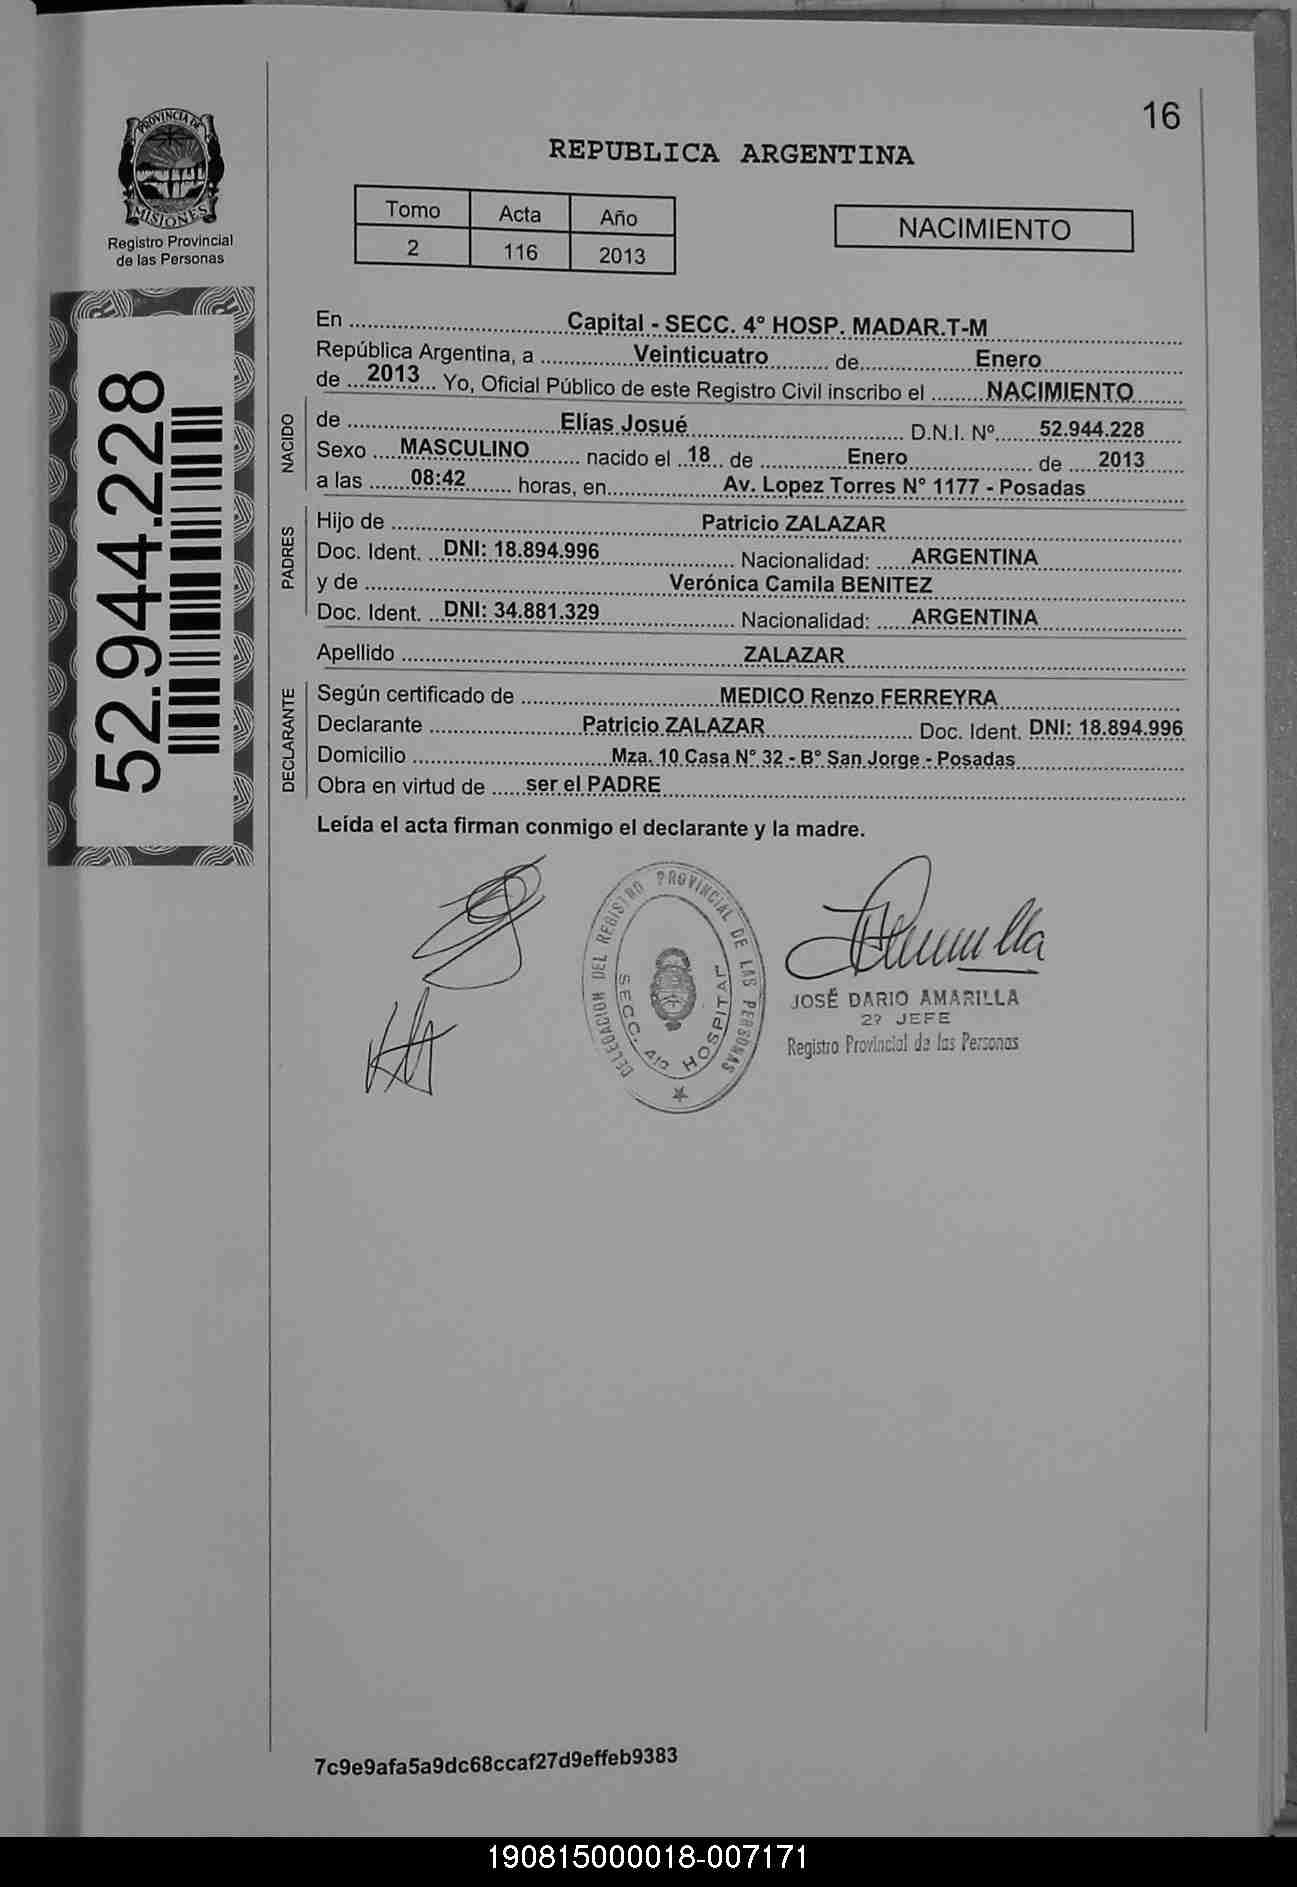 16
PROVINCIA DE
MISIONES
Registro Provincial
de las Personas
52.944.228
REPUBLICA ARGENTINA
Tomo Acta Año
2 116 2013
NACIMIENTO
En ........ Capital - SECC. 4° HOSP. MADAR.T-M
República Argentina, a ........ Veinticuatro ........ de ........ Enero
de ... 2013 ... Yo, Oficial Público de este Registro Civil inscribo el ........ NACIMIENTO
NACIDO
de ........ Elías Josué ........ D.N.I. Nº ...... 52.944.228
Sexo .... MASCULINO ........ nacido el .. 18 .. de ........ Enero ........ de .... 2013
a las ...... 08:42 ...... horas, en ........ Av. Lopez Torres N° 1177 - Posadas
PADRES
Hijo de ........ Patricio ZALAZAR
Doc. Ident. .. DNI: 18.894.996 ........ Nacionalidad: ..... ARGENTINA
y de ........ Verónica Camila BENITEZ
Doc. Ident. .. DNI: 34.881.329 ........ Nacionalidad: ..... ARGENTINA
Apellido ........ ZALAZAR
DECLARANTE
Según certificado de ........ MEDICO Renzo FERREYRA
Declarante ........ Patricio ZALAZAR ........ Doc. Ident. DNI: 18.894.996
Domicilio ........ Mza. 10 Casa N° 32 - B° San Jorge - Posadas
Obra en virtud de ..... ser el PADRE
Leída el acta firman conmigo el declarante y la madre.
DELEGACION DEL REGISTRO PROVINCIAL DE LAS PERSONAS
SECC. 4ta HOSPITAL
JOSÉ DARIO AMARILLA
2º JEFE
Registro Provincial de las Personas
7c9e9afa5a9dc68ccaf27d9effeb9383
190815000018-007171